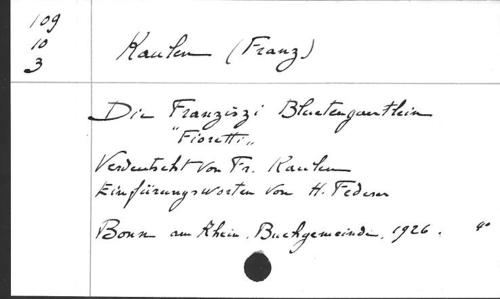 109
10
3
Kaulen (Franz)
Die Franziszi Bluetengaertlein
"Fioretti"
Verdeutscht von Fr. Kaulen
Einfürungsworten von H. Federer
Bonn am Rhein. Buchgemeinde, 1926. 4°